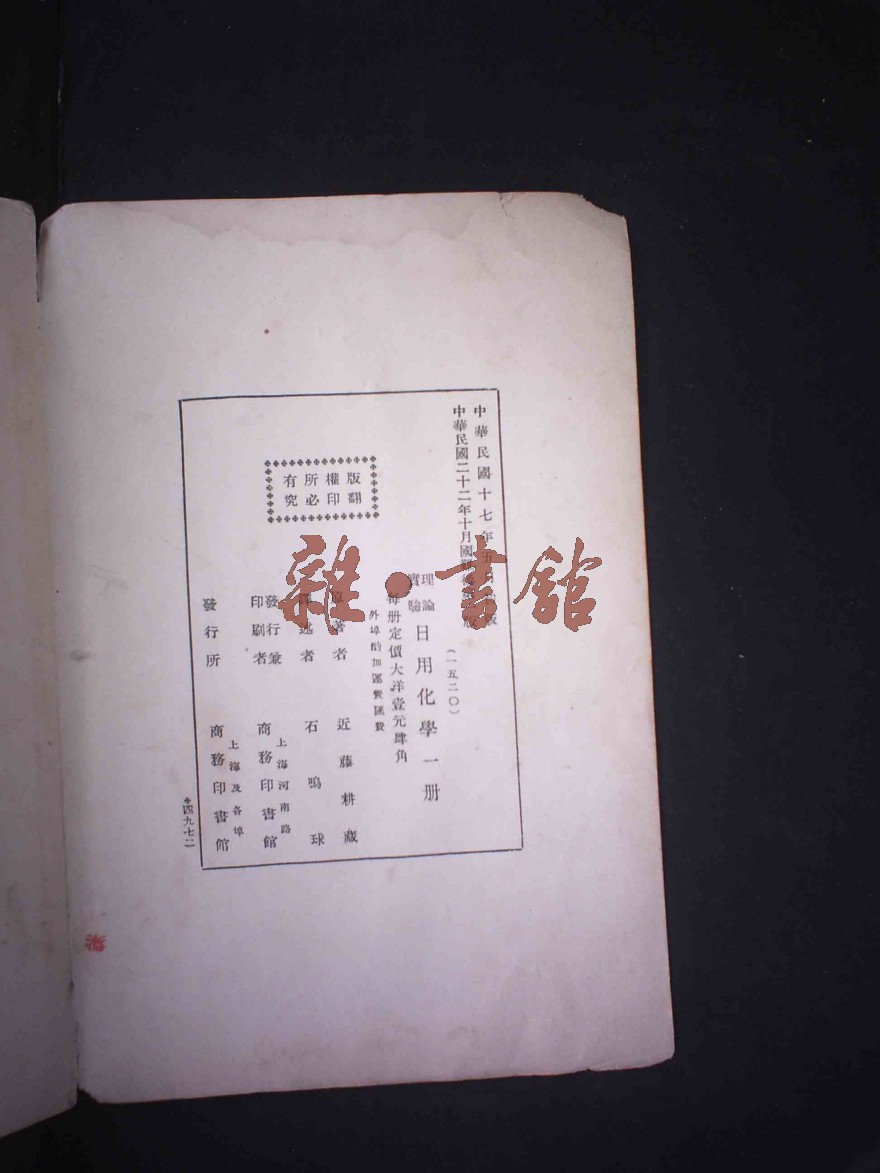 中華民國十七年五月初版
中華民國二十二年十月國難後第一版
(一五二〇)
理論
實驗
日用化學一册
每册定價大洋壹元肆角
外埠酌加運費匯費
原著者 近藤耕藏
譯述者 石鳴球
發行兼
印刷者
上海河南路
商務印書館
發行所
上海及各埠
商務印書館
版權所有
翻印必究
四九七二
雜·書館